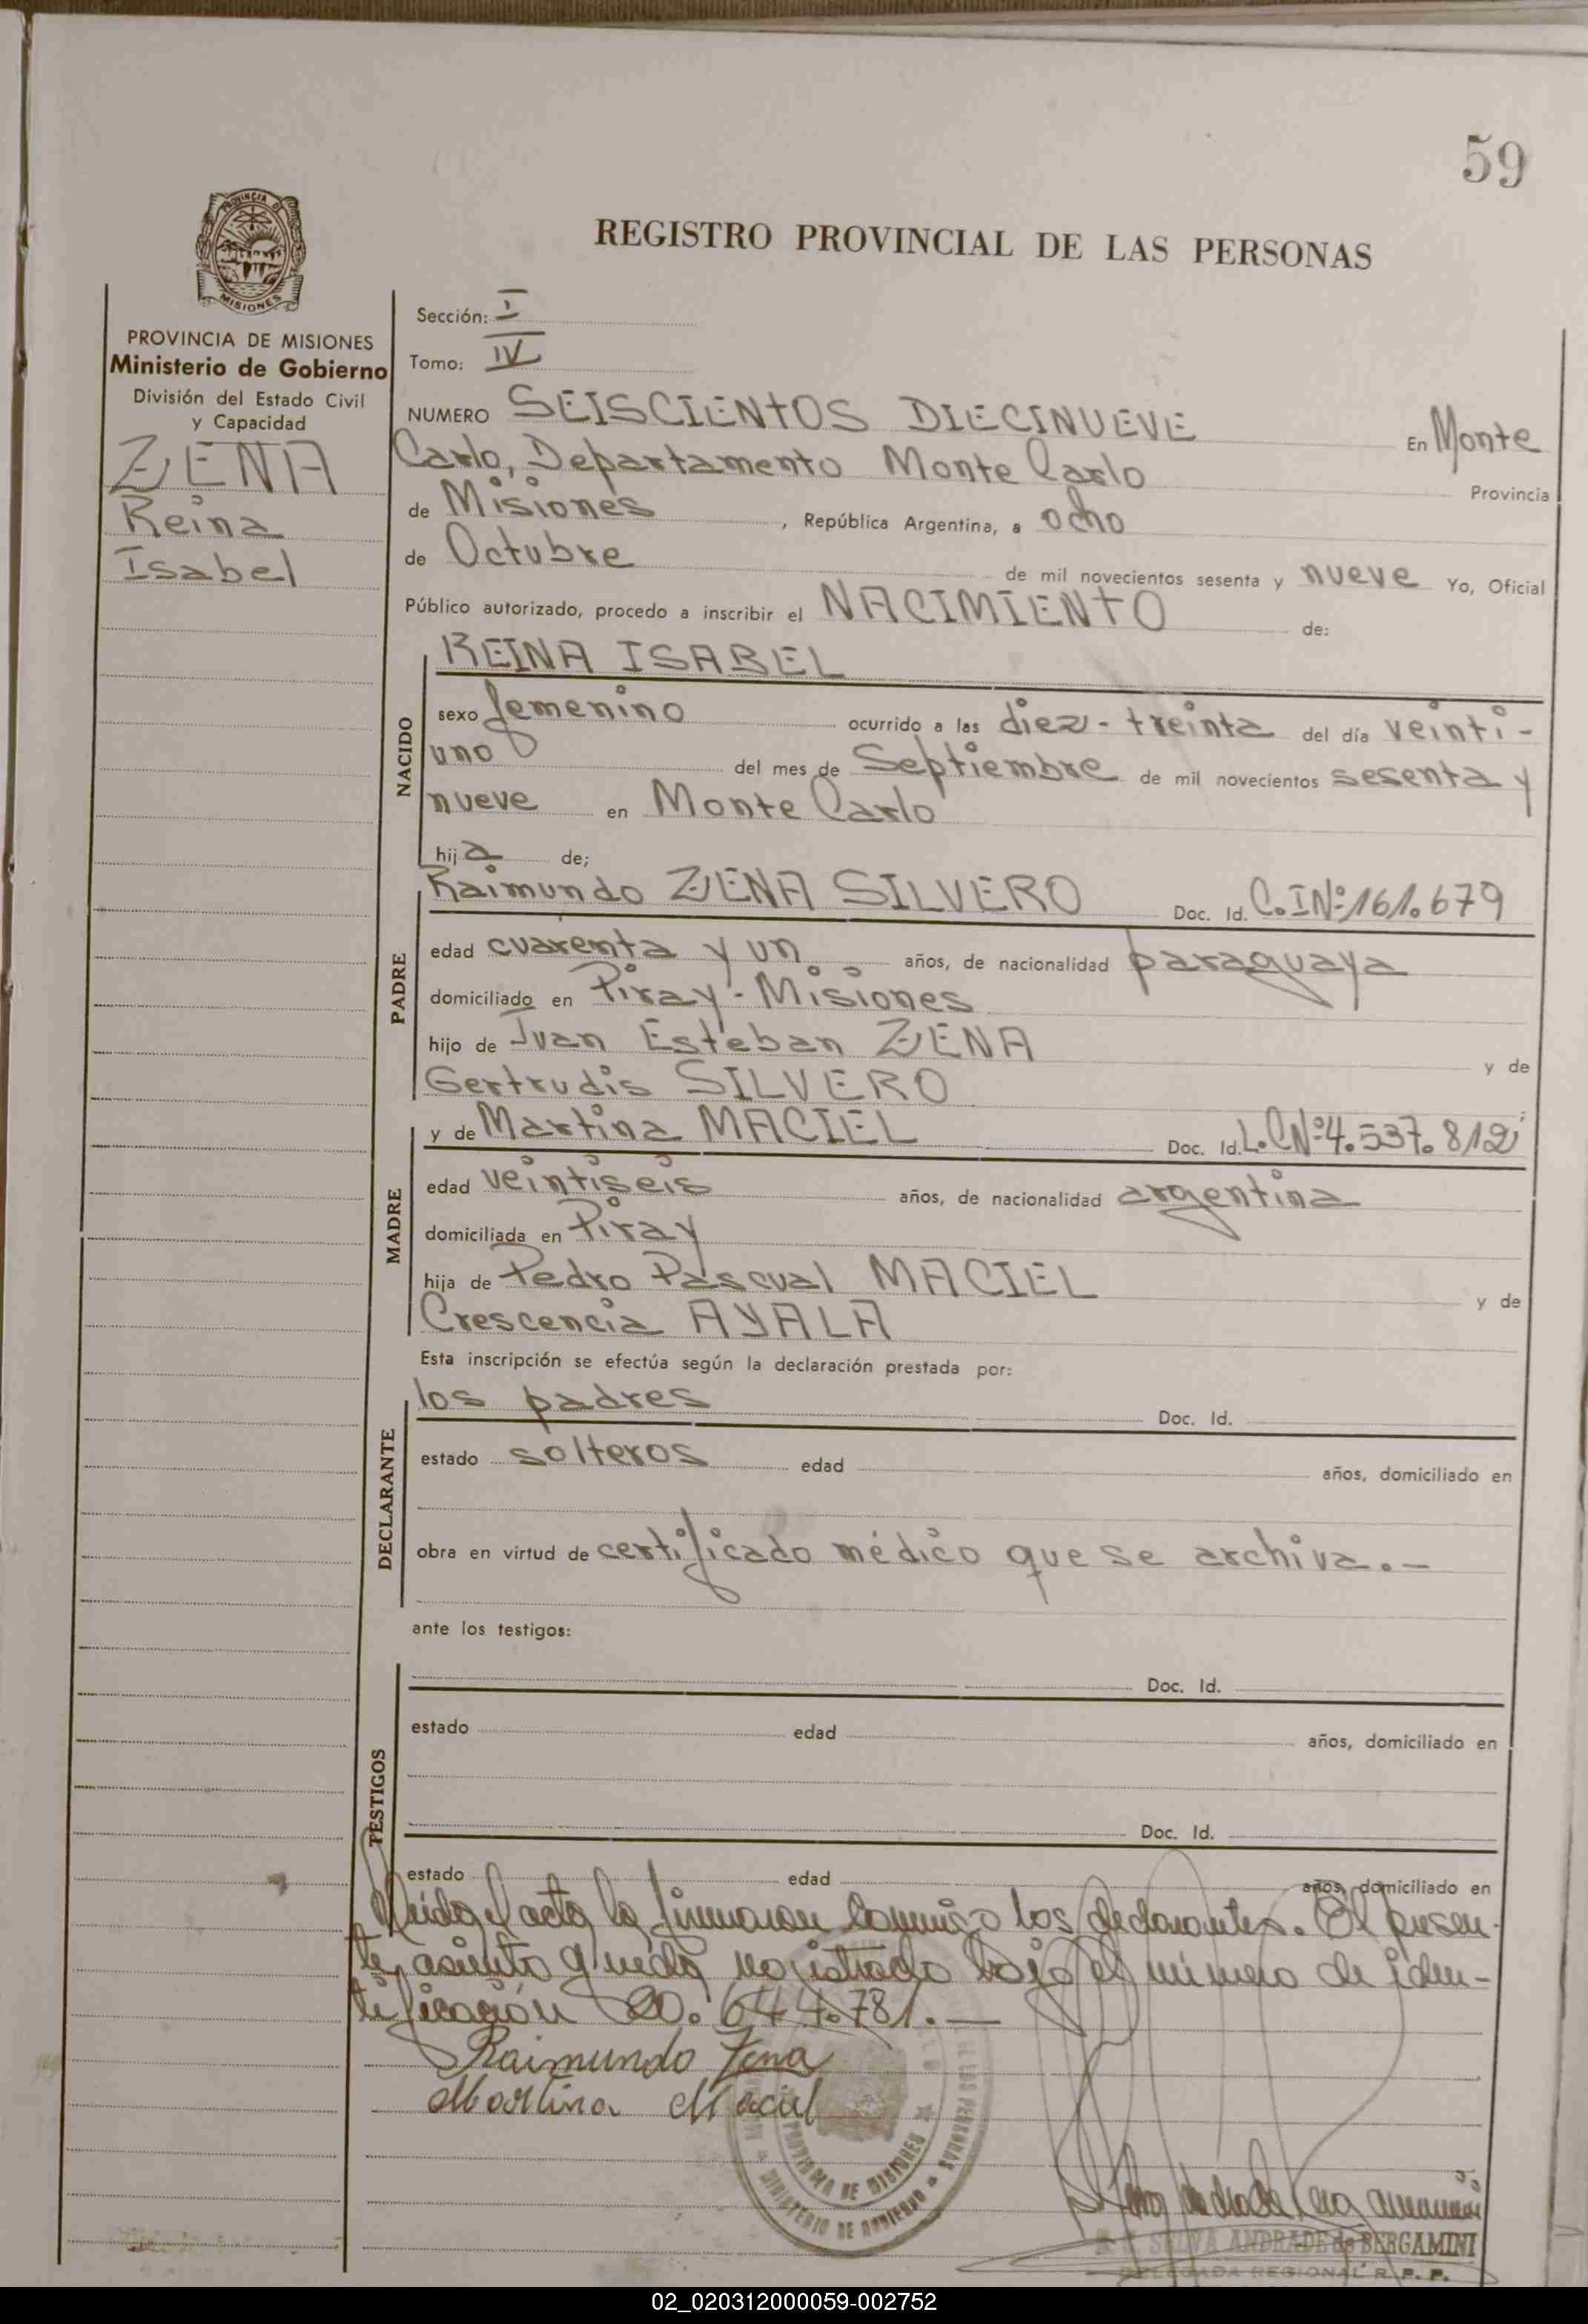 59
REGISTRO PROVINCIAL DE LAS PERSONAS
PROVINCIA DE MISIONES
PROVINCIA DE MISIONES
Ministerio de Gobierno
División del Estado Civil
y Capacidad
ZENA
Reina
Isabel
Sección: I
Tomo: IV
NUMERO SEISCIENTOS DIECINUEVE En Monte
Carlo, Departamento Monte Carlo Provincia
de Misiones, República Argentina, a ocho
de Octubre de mil novecientos sesenta y nueve Yo, Oficial
Público autorizado, procedo a inscribir el NACIMIENTO de:
REINA ISABEL
NACIDO
sexo femenino ocurrido a las diez-treinta del día veinti-
uno del mes de Septiembre de mil novecientos sesenta y
nueve en Monte Carlo
hija de;
PADRE
Raimundo ZENA SILVERO Doc. Id. C.I Nº 161.679
edad cuarenta y un años, de nacionalidad paraguaya
domiciliado en Piray-Misiones
hijo de Juan Esteban ZENA y de
Gertrudis SILVERO
MADRE
y de Martina MACIEL Doc. Id. L.C Nº 4.537.812
edad veintiseis años, de nacionalidad argentina
domiciliada en Piray
hija de Pedro Pascual MACIEL y de
Crescencia AYALA
Esta inscripción se efectúa según la declaración prestada por:
DECLARANTE
los padres Doc. Id.
estado solteros edad años, domiciliado en
obra en virtud de certificado médico que se archiva.-
ante los testigos:
TESTIGOS
Doc. Id.
estado edad años, domiciliado en
Doc. Id.
estado edad años, domiciliado en
leída el acta la firmaron conmigo los declarantes. El presen-
te asiento queda registrado bajo el número de iden-
tificación 20.644.781.—
Raimundo Zena
Martina Maciel
PROVINCIA DE MISIONES
MINISTERIO DE GOBIERNO
SELVA ANDRADE de BERGAMINI
DELEGADA REGIONAL R. P. P.
02_020312000059-002752